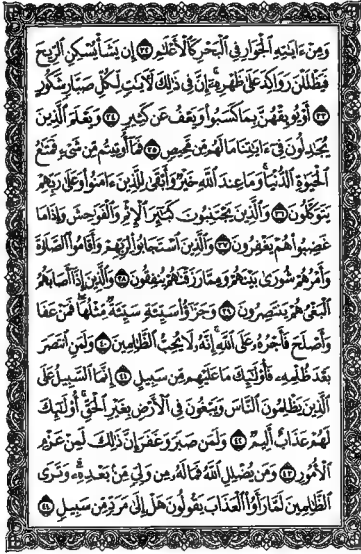 وَمِنْ ءَايَٰتِهِ ٱلْجَوَارِ فِي ٱلْبَحْرِ كَٱلْأَعْلَٰمِ ٣٢ إِن يَشَأْ يُسْكِنِ ٱلرِّيحَ
فَيَظْلَلْنَ رَوَاكِدَ عَلَىٰ ظَهْرِهِۦٓ إِنَّ فِي ذَٰلِكَ لَءَايَٰتٍ لِّكُلِّ صَبَّارٍ شَكُورٍ
٣٣ أَوْ يُوبِقْهُنَّ بِمَا كَسَبُوا۟ وَيَعْفُ عَن كَثِيرٍ ٣٤ وَيَعْلَمَ ٱلَّذِينَ
يُجَٰدِلُونَ فِيٓ ءَايَٰتِنَا مَا لَهُم مِّن مَّحِيصٍ ٣٥ فَمَآ أُوتِيتُم مِّن شَيْءٍ فَمَتَٰعُ
ٱلْحَيَوٰةِ ٱلدُّنْيَا وَمَا عِندَ ٱللَّهِ خَيْرٌ وَأَبْقَىٰ لِلَّذِينَ ءَامَنُوا۟ وَعَلَىٰ رَبِّهِمْ
يَتَوَكَّلُونَ ٣٦ وَٱلَّذِينَ يَجْتَنِبُونَ كَبَٰٓئِرَ ٱلْإِثْمِ وَٱلْفَوَٰحِشَ وَإِذَا مَا
غَضِبُوا۟ هُمْ يَغْفِرُونَ ٣٧ وَٱلَّذِينَ ٱسْتَجَابُوا۟ لِرَبِّهِمْ وَأَقَامُوا۟ ٱلصَّلَوٰةَ
وَأَمْرُهُمْ شُورَىٰ بَيْنَهُمْ وَمِمَّا رَزَقْنَٰهُمْ يُنفِقُونَ ٣٨ وَٱلَّذِينَ إِذَآ أَصَابَهُمُ
ٱلْبَغْيُ هُمْ يَنتَصِرُونَ ٣٩ وَجَزَٰٓؤُا۟ سَيِّئَةٍ سَيِّئَةٌ مِّثْلُهَا فَمَنْ عَفَا
وَأَصْلَحَ فَأَجْرُهُۥ عَلَى ٱللَّهِ إِنَّهُۥ لَا يُحِبُّ ٱلظَّٰلِمِينَ ٤٠ وَلَمَنِ ٱنتَصَرَ
بَعْدَ ظُلْمِهِۦ فَأُو۟لَٰٓئِكَ مَا عَلَيْهِم مِّن سَبِيلٍ ٤١ إِنَّمَا ٱلسَّبِيلُ عَلَى
ٱلَّذِينَ يَظْلِمُونَ ٱلنَّاسَ وَيَبْغُونَ فِي ٱلْأَرْضِ بِغَيْرِ ٱلْحَقِّ أُو۟لَٰٓئِكَ
لَهُمْ عَذَابٌ أَلِيمٌ ٤٢ وَلَمَن صَبَرَ وَغَفَرَ إِنَّ ذَٰلِكَ لَمِنْ عَزْمِ
ٱلْأُمُورِ ٤٣ وَمَن يُضْلِلِ ٱللَّهُ فَمَا لَهُۥ مِن وَلِيٍّ مِّنۢ بَعْدِهِۦ وَتَرَى
ٱلظَّٰلِمِينَ لَمَّا رَأَوُا۟ ٱلْعَذَابَ يَقُولُونَ هَلْ إِلَىٰ مَرَدٍّ مِّن سَبِيلٍ ٤٤